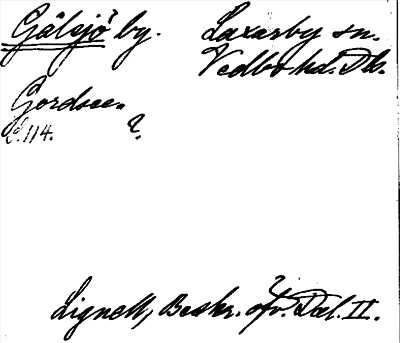 Gälsjö by. Laxarby sn.
Vedbo hd. Dls.
Gordseen
Ld. 114. ?
Lignell, Beskr. öfv. Dal. II.